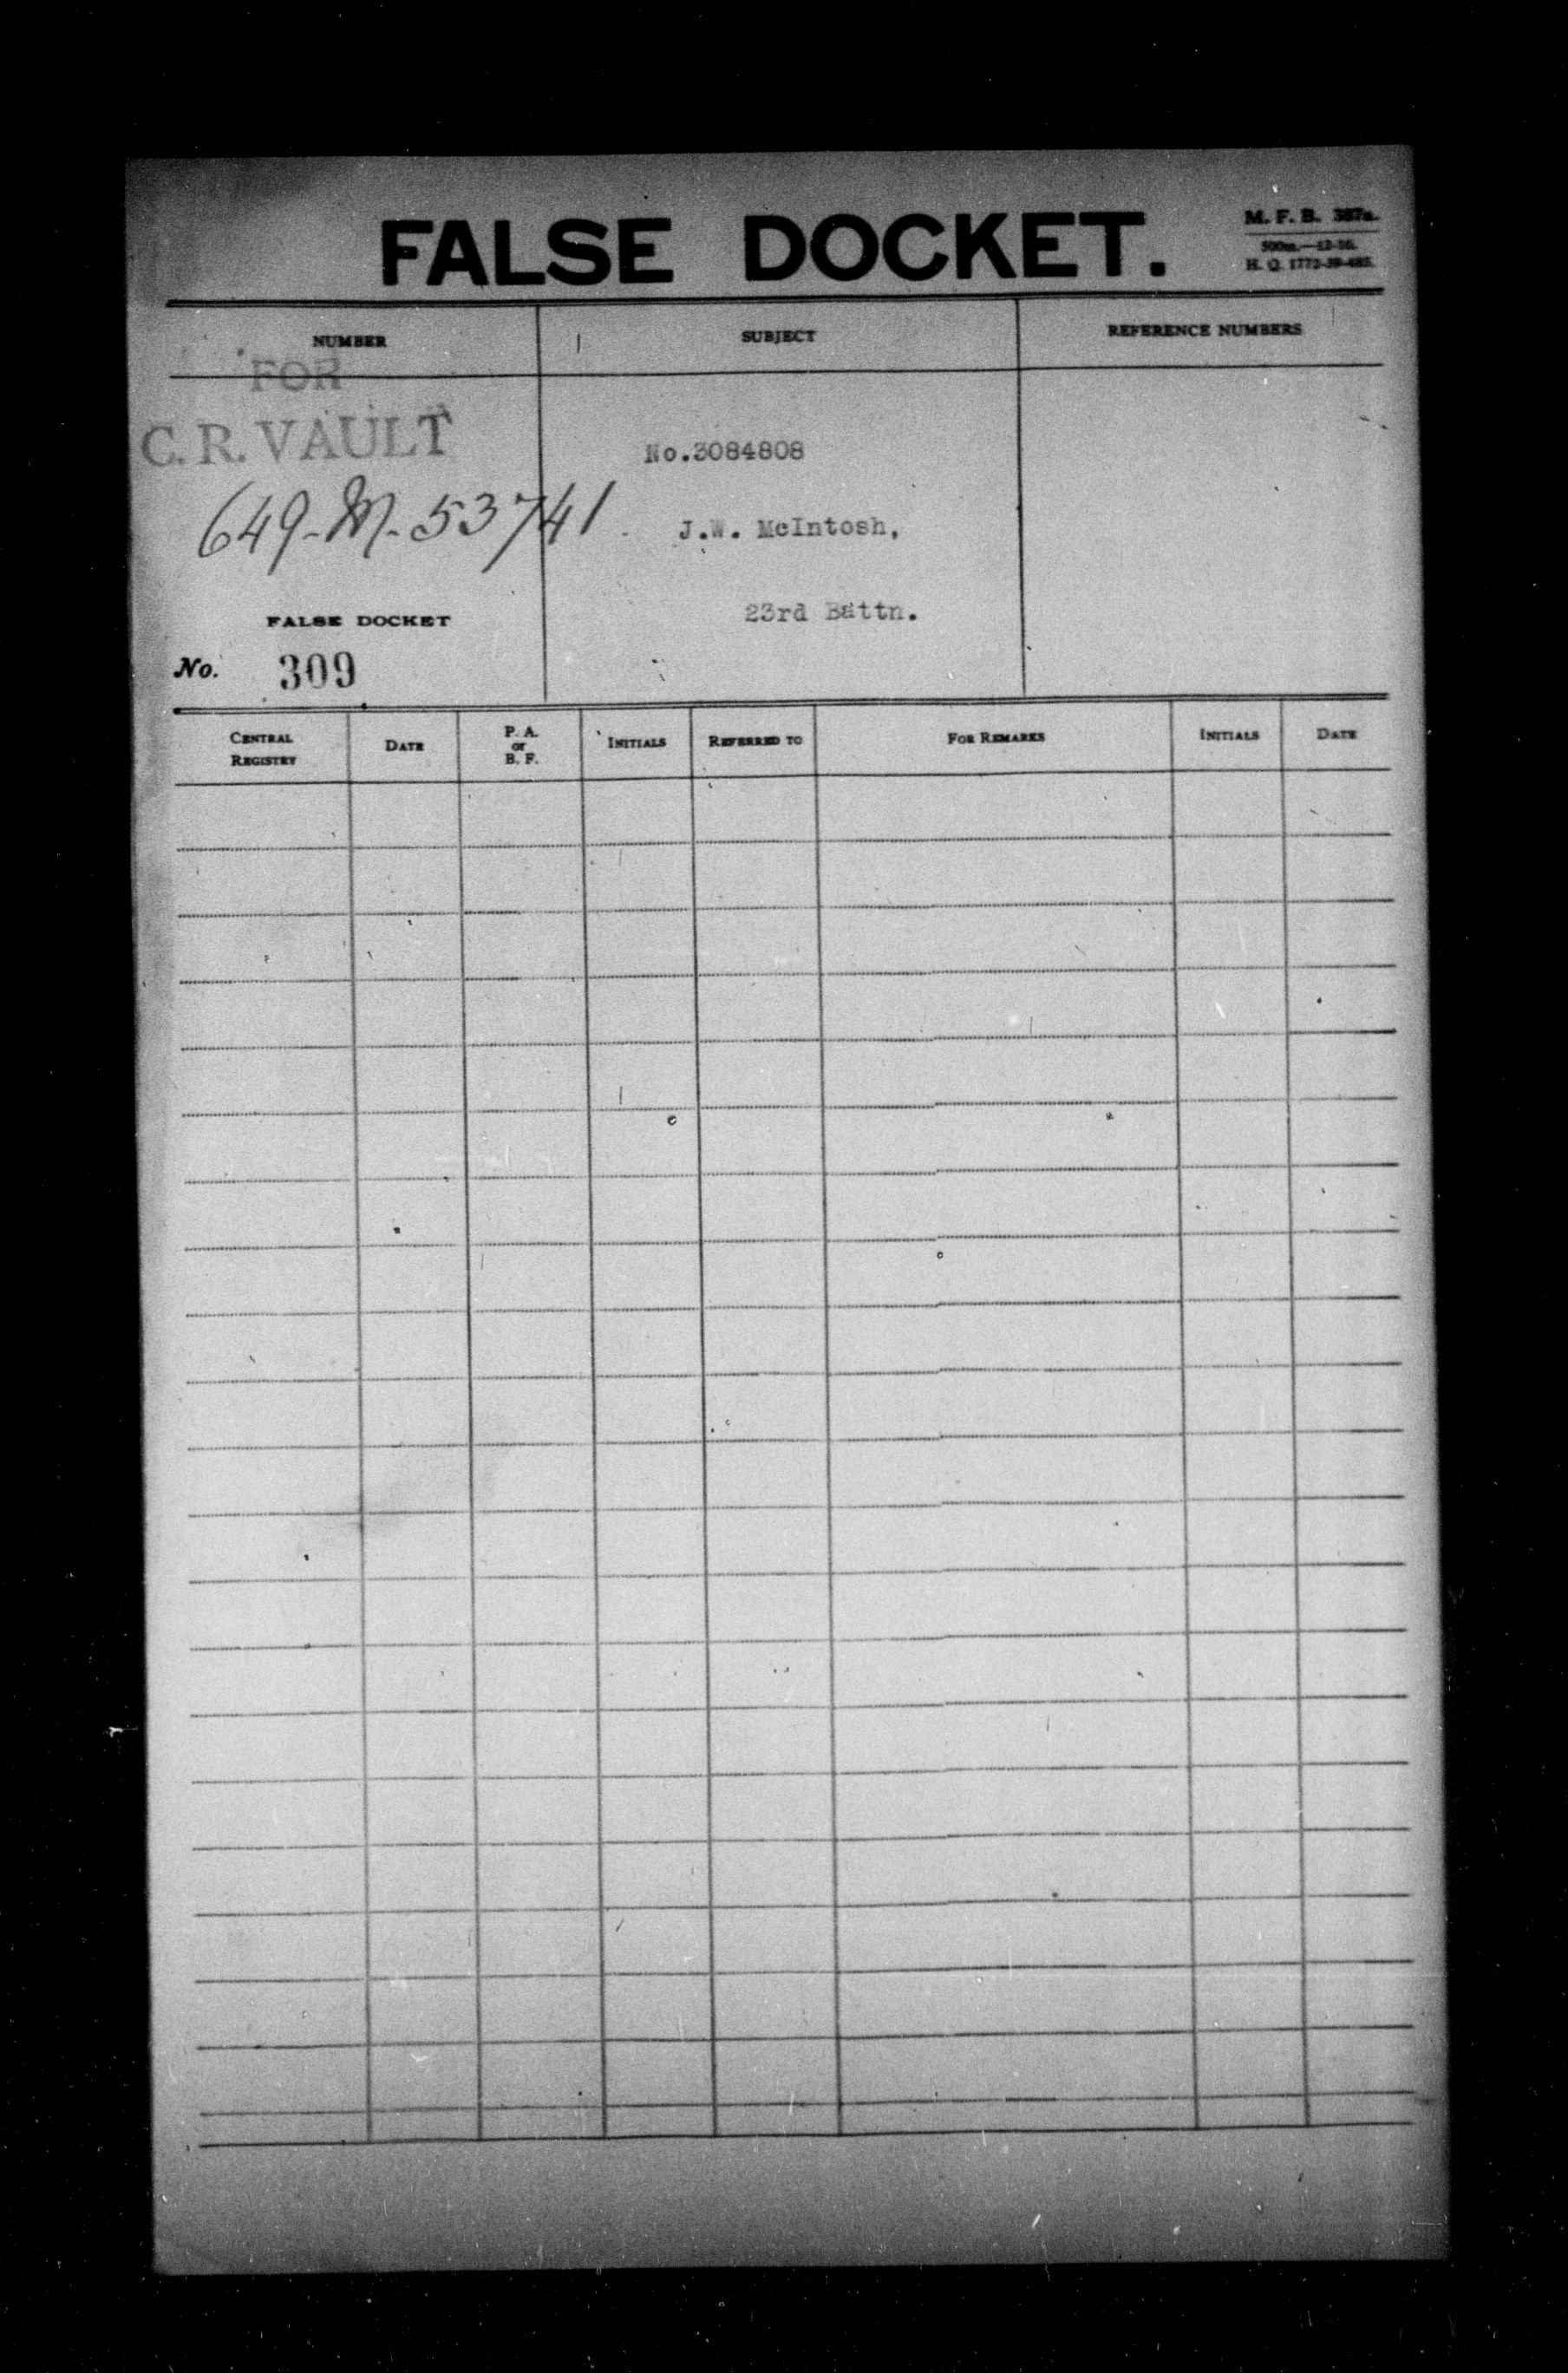 FALSE DOCKET.
M. F. B. 387a.
500m.—12-16.
H. Q. 1772-39-485.
NUMBER
SUBJECT
REFERENCE NUMBERS
FOR
C. R. VAULT
649-M-53741
No.3084808
J.W. McIntosh,
23rd Battn.
FALSE DOCKET
No. 309
CENTRAL REGISTRY
DATE
P. A. or B. F.
INITIALS
REFERRED TO
FOR REMARKS
INITIALS
DATE